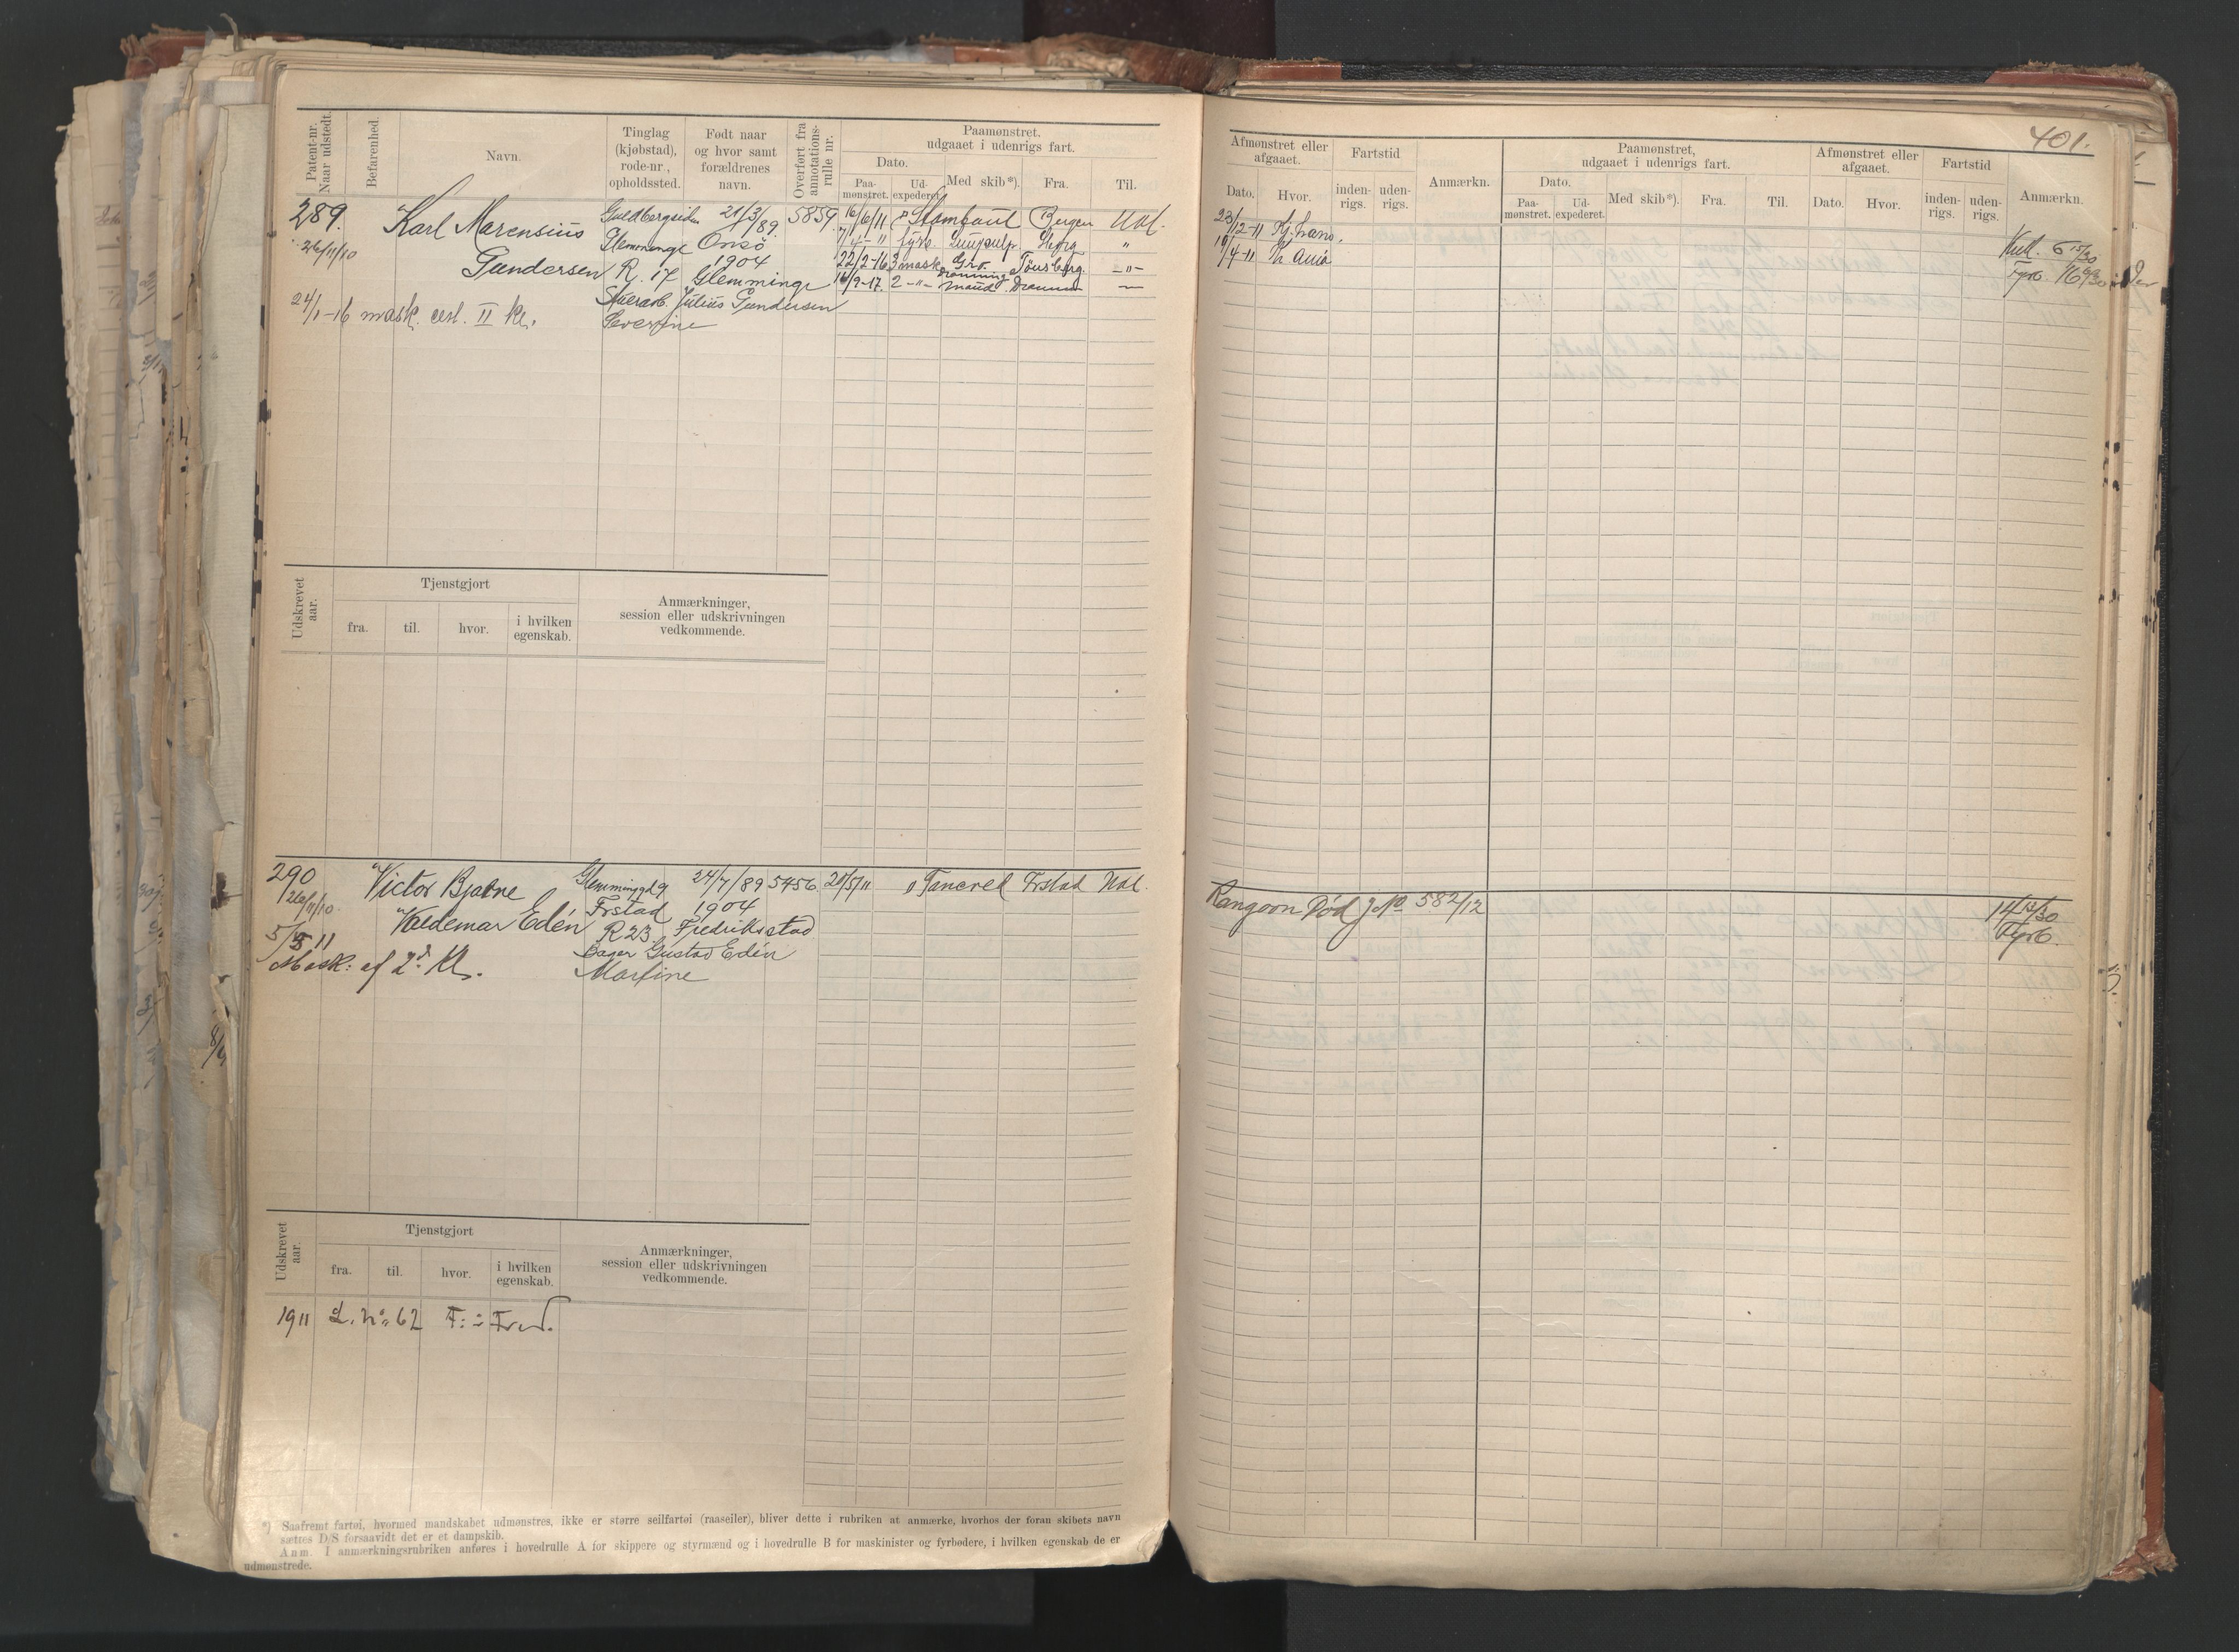 Patent-nr.
Naar udstedt.
Befarenhed.
Navn.
Tinglag
(kjøbstad),
rode-nr.,
opholdssted.
Født naar
og hvor samt
forældrenes
navn.
Overført fra
annotations-
rulle nr.
Paamønstret.
udgaaet i udenrigs fart.
Dato.
Paa-
mønstret.
Ud-
expederet.
Med skib*).
Fra.
Til.
289.
26/11/10
Karl Marensius
Gundersen
24/1-16 mask. cert. II kl.
Guldbergsiden
Glemminge
R. 17
21/3/89
Onsö
1904
Glemminge
Julius Gundersen
Severine
5859
16/6/11 Bergen Udl.
22/2-16 3 mask. Gro. Tönsberg. -"-
2 -"- Dronning Maud
Udskrevet
aar.
Tjenstgjort
fra.
til.
hvor.
i hvilken
egenskab.
Anmærkninger,
session eller udskrivningen
vedkommende.
290
26/11/10
5/5 11
Mask: af 2d Kl.
Victor Bjarne
Valdemar Edén
Frstad
R 23
24/7/89
1904
Fredriksstad
Gustav Edén
Martine
5456
Tancred Frstad Udl.
Udskrevet
aar.
Tjenstgjort
fra.
til.
hvor.
i hvilken
egenskab.
Anmærkninger,
session eller udskrivningen
vedkommende.
1911 L. No 62
*) Saafremt fartøi, hvormed mandskabet udmønstres, ikke er større seilfartøi (raaseiler), bliver dette i rubriken at anmærke, hvorhos der foran skibets navn
sættes D/S forsaavidt det er et dampskib.
Anm. I anmærkningsrubriken anføres i hovedrulle A for skippere og styrmænd og i hovedrulle B for maskinister og fyrbødere, i hvilken egenskab de er
udmønstrede.
401.
Afmønstret eller
afgaaet.
Dato.
Hvor.
Fartstid
inden-
rigs.
uden-
rigs.
Anmærkn.
Paamønstret,
udgaaet i udenrigs fart.
Dato.
Paa-
mønstret.
Ud-
expederet.
Med skib*).
Fra.
Til.
Afmønstret eller
afgaaet.
Dato.
Hvor.
Fartstid
inden-
rigs.
uden-
rigs.
Anmærkn.
23/12-11
Kull. 6 15/30
Fyrb.
Rangoon Död J.No 582/12
14 13/30
Fyrb.